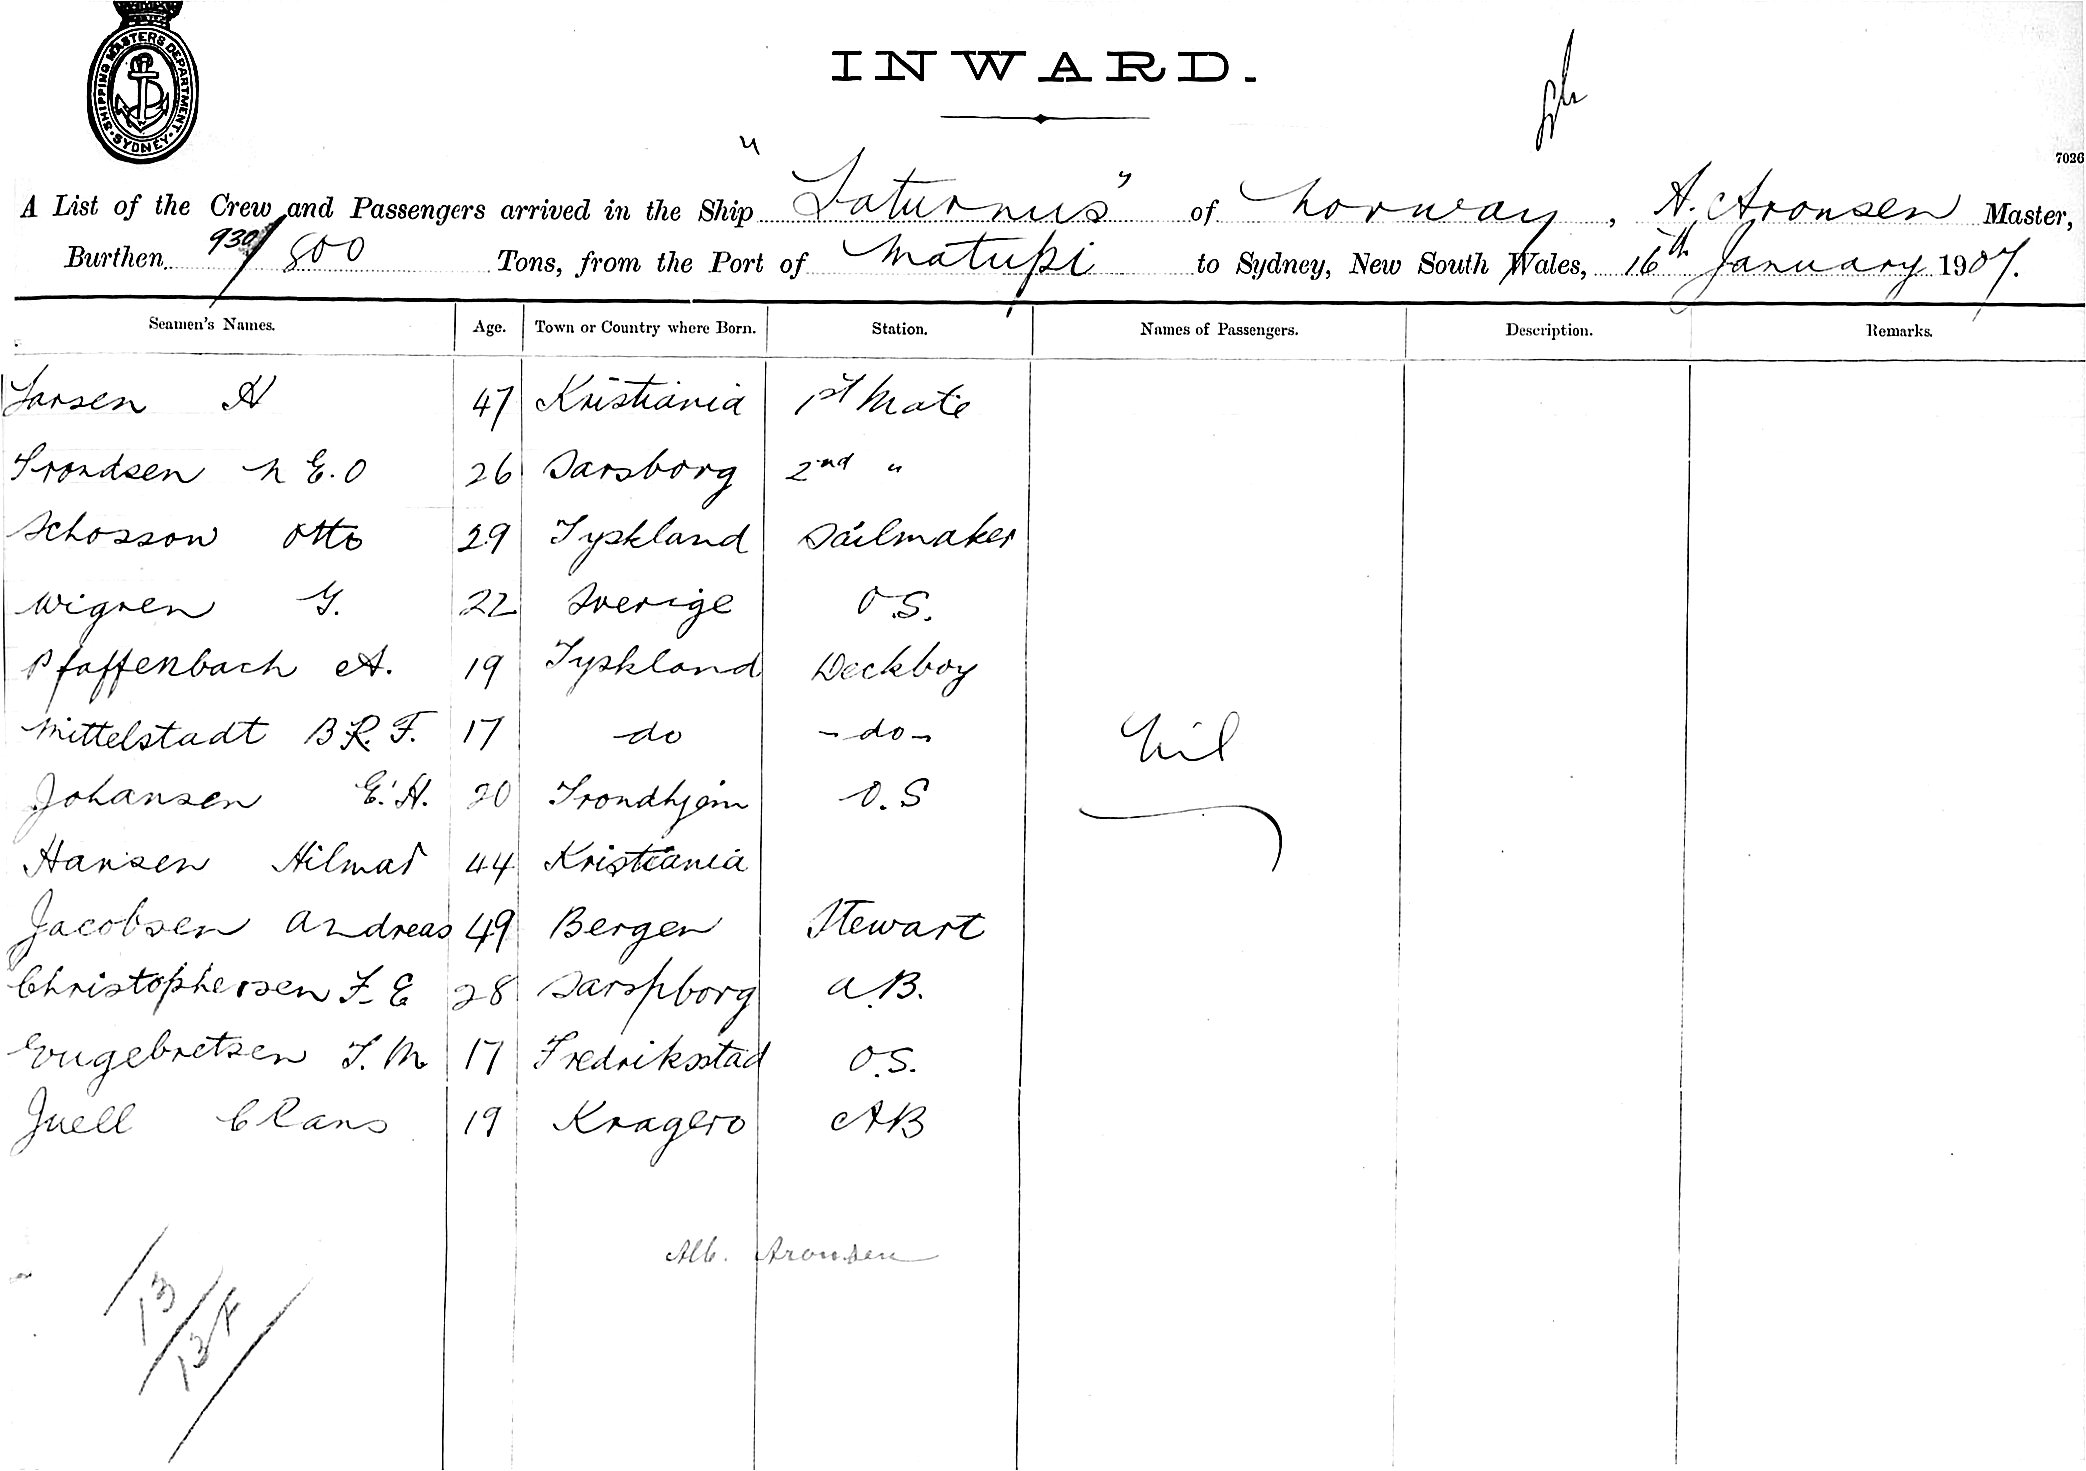 SHIPPING MASTERS DEPARTMENT
SYDNEY
INWARD.
7026
A List of the Crew and Passengers arrived in the Ship "Saturnus" of Norway, A. Aronsen Master,
Burthen 930/800 Tons, from the Port of Matupi to Sydney, New South Wales, 16th January 1907.
Seamen's Names. Age. Town or Country where Born. Station. Names of Passengers. Description. Remarks.
Larsen H 47 Kristiania 1st Mate
Trondsen N E.O 26 Sarsborg 2nd "
Schosson Otto 29 Tyskland Sailmaker
Wigren G. 22 Sverige O.S.
Pfaffenbach A. 19 Tyskland Deckboy
Mittelstadt B R. F. 17 do - do -
Nil
Johansen E. H. 20 Trondhjem O.S
Hansen Hilmar 44 Kristiania
Jacobsen Andreas 49 Bergen Stewart
Christophersen F. E 28 Sarspborg A.B.
Engebretsen T. M 17 Fredriksstad O.S.
Juell Clans 19 Kragero AB
Alb. Aronsen
13
13F